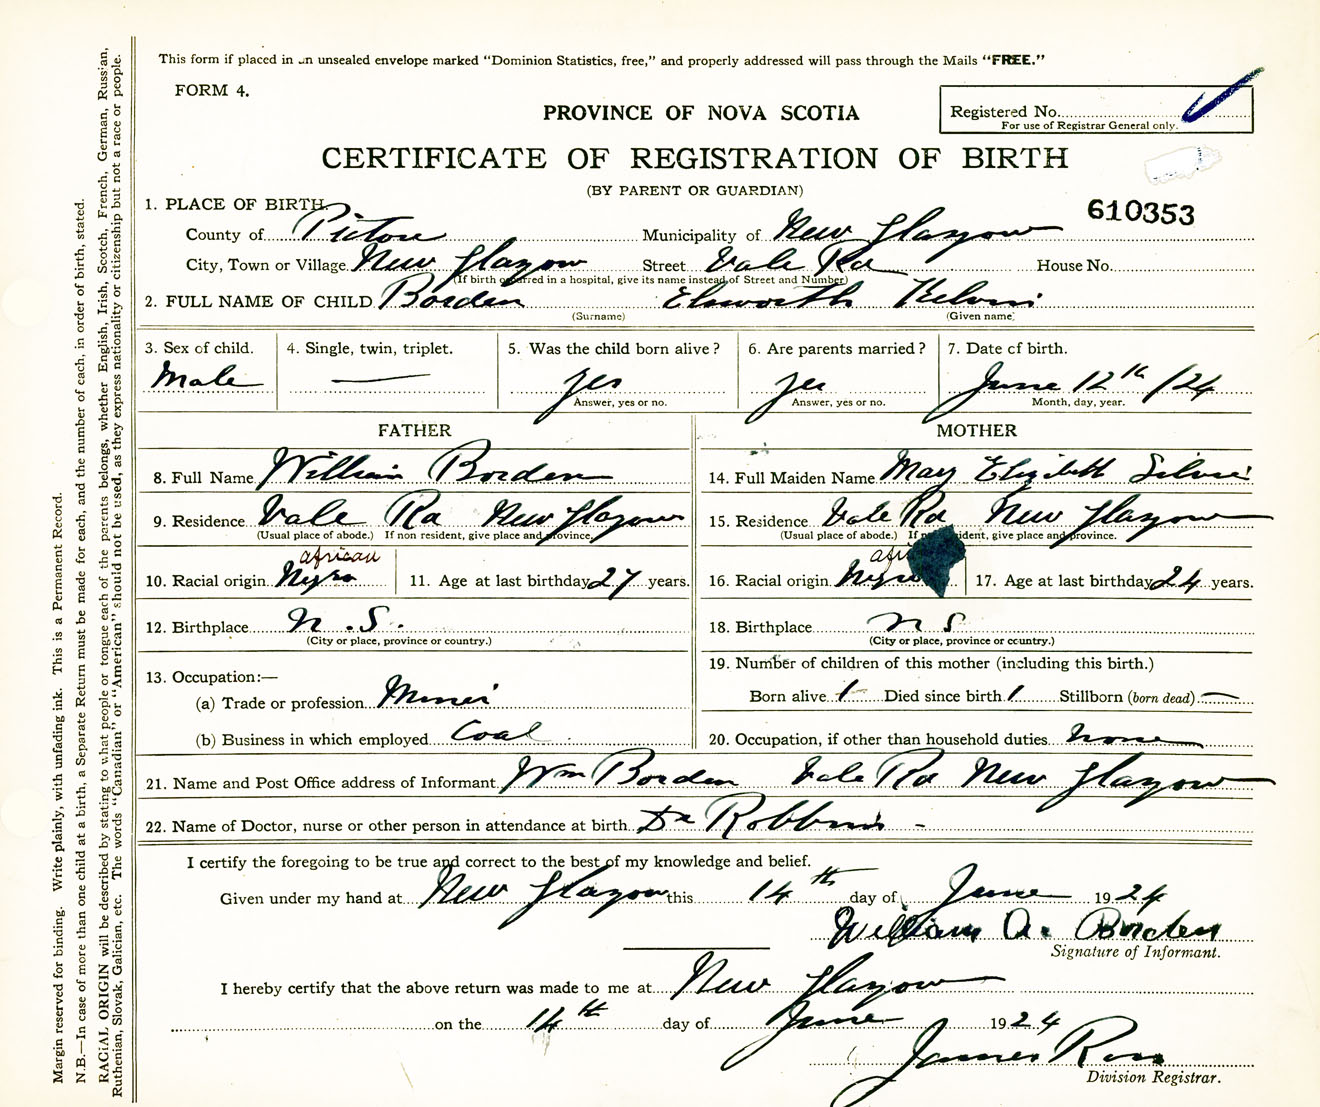 This form if placed in an unsealed envelope marked "Dominion Statistics, free," and properly addressed will pass through the Mails "FREE."
FORM 4.
PROVINCE OF NOVA SCOTIA
Registered No.
For use of Registrar General only.
CERTIFICATE OF REGISTRATION OF BIRTH
(BY PARENT OR GUARDIAN)
610353
1. PLACE OF BIRTH.
County of Pictou Municipality of New Glasgow
City, Town or Village New Glasgow Street Vale Rd House No.
(If birth occurred in a hospital, give its name instead of Street and Number)
2. FULL NAME OF CHILD Borden Elsworth Kelvin
(Surname) (Given name)
3. Sex of child. 4. Single, twin, triplet. 5. Was the child born alive? 6. Are parents married? 7. Date of birth.
Male — yes yes June 12th /24
Answer, yes or no. Answer, yes or no. Month, day, year.
FATHER MOTHER
8. Full Name William Borden 14. Full Maiden Name Mary Elizibeth
9. Residence Vale Rd New Glasgow 15. Residence Vale Rd New Glasgow
(Usual place of abode.) If non resident, give place and province. (Usual place of abode.) If resident, give place and province.
african afri
10. Racial origin Negro 11. Age at last birthday 27 years. 16. Racial origin Negro 17. Age at last birthday 24 years.
12. Birthplace N.S. 18. Birthplace N S
(City or place, province or country.) (City or place, province or country.)
13. Occupation:— 19. Number of children of this mother (including this birth.)
(a) Trade or profession Miner Born alive 1 Died since birth 1 Stillborn (born dead) —
(b) Business in which employed Coal 20. Occupation, if other than household duties none
21. Name and Post Office address of Informant Wm Borden Vale Rd New Glasgow
22. Name of Doctor, nurse or other person in attendance at birth Dr Robbins -
I certify the foregoing to be true and correct to the best of my knowledge and belief.
Given under my hand at New Glasgow this 14th day of June 1924
William A. Borden
Signature of Informant.
I hereby certify that the above return was made to me at New Glasgow
on the 14th day of June 1924
James
Division Registrar.
Margin reserved for binding. Write plainly, with unfading ink. This is a Permanent Record.
N.B.—In case of more than one child at a birth, a Separate Return must be made for each, and the number of each, in order of birth, stated.
RACIAL ORIGIN will be described by stating to what people or tongue each of the parents belongs, whether English, Irish, Scotch, French, German, Russian,
Ruthenian, Slovak, Galician, etc. The words "Canadian" or "American" should not be used, as they express nationality or citizenship but not a race or people.